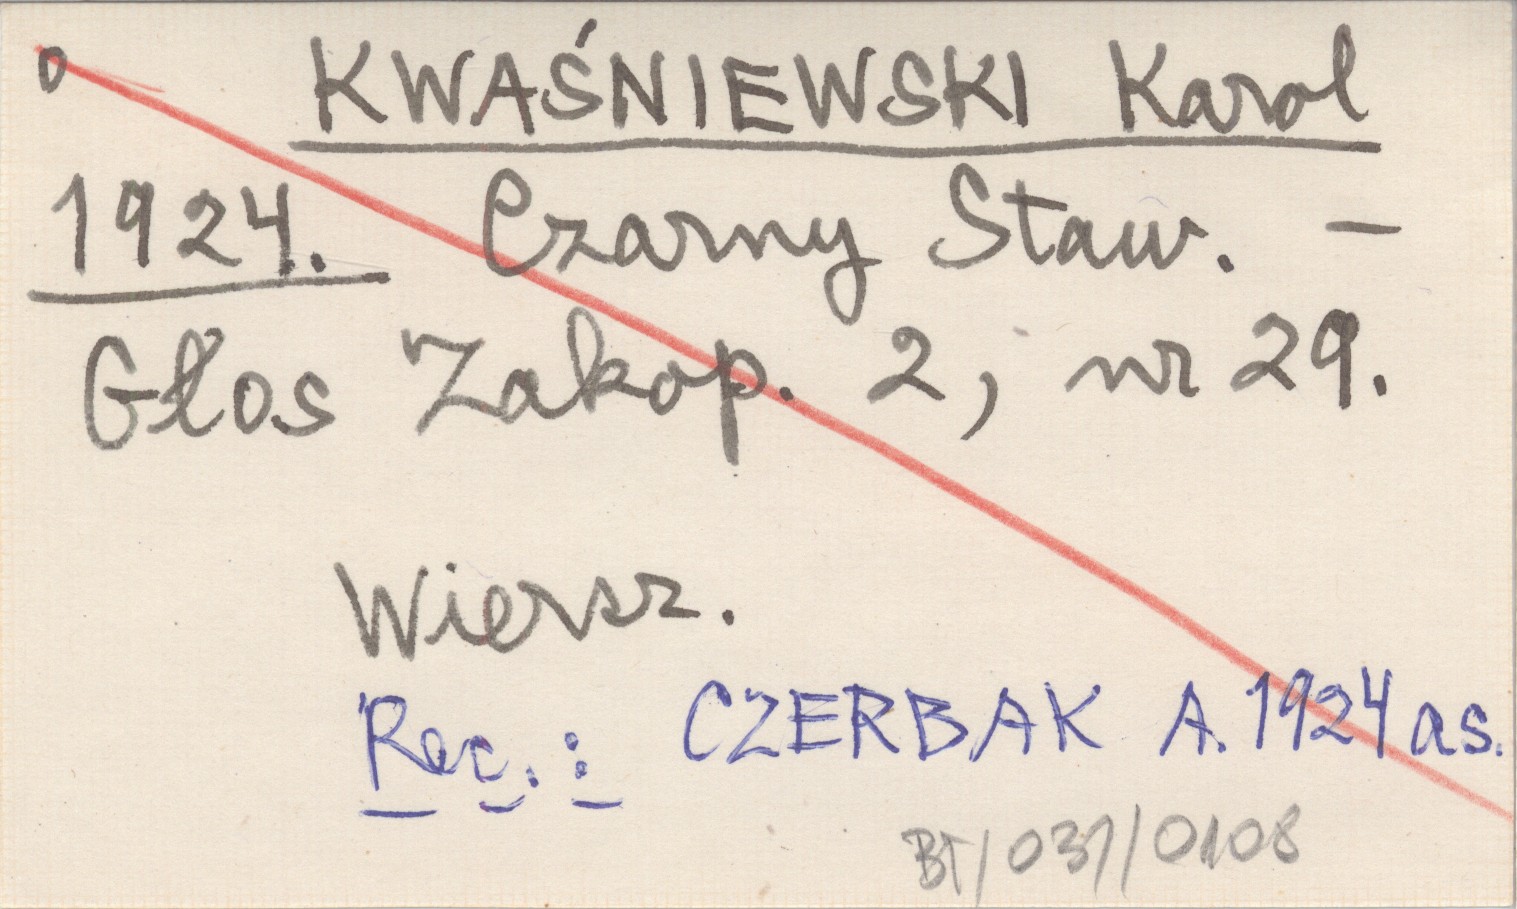 0 KWAŚNIEWSKI Karol
1924. Czarny Staw. –
Głos Zakop. 2, nr 29.
Wiersz.
Rec.: CZERBAK A. 1924 as.
BT/031/0108